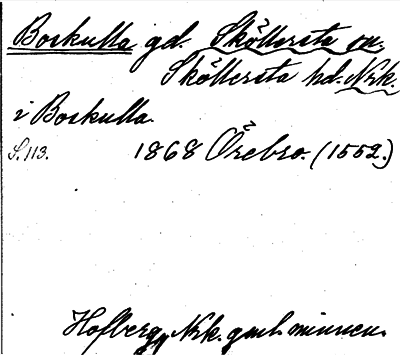 Boskulla gd. Sköllersta sn.
Sköllersta hd. Nrk.
i Boskulla
S. 113. 1868 Örebro. (1552.)
Hofberg, Nrk. gml. minnen.